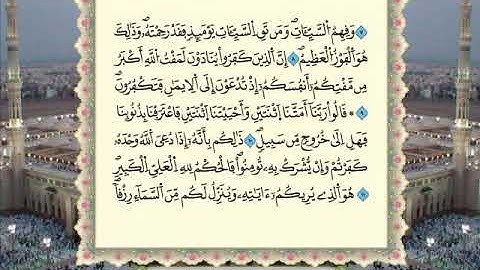 ٧ وَقِهِمُ السَّيِّـَٔاتِ وَمَن تَقِ السَّيِّـَٔاتِ يَوْمَئِذٍ فَقَدْ رَحِمْتَهُۥ وَذَٰلِكَ
هُوَ الْفَوْزُ الْعَظِيمُ ٨ إِنَّ الَّذِينَ كَفَرُوا۟ يُنَادَوْنَ لَمَقْتُ اللَّهِ أَكْبَرُ
مِن مَّقْتِكُمْ أَنفُسَكُمْ إِذْ تُدْعَوْنَ إِلَى الْإِيمَٰنِ فَتَكْفُرُونَ
٩ قَالُوا۟ رَبَّنَا أَمَتَّنَا اثْنَتَيْنِ وَأَحْيَيْتَنَا اثْنَتَيْنِ فَاعْتَرَفْنَا بِذُنُوبِنَا
فَهَلْ إِلَىٰ خُرُوجٍ مِّن سَبِيلٍ ١٠ ذَٰلِكُم بِأَنَّهُۥ إِذَا دُعِيَ اللَّهُ وَحْدَهُۥ
كَفَرْتُمْ وَإِن يُشْرَكْ بِهِۦ تُؤْمِنُوا۟ فَالْحُكْمُ لِلَّهِ الْعَلِيِّ الْكَبِيرِ
١١ هُوَ الَّذِي يُرِيكُمْ ءَايَٰتِهِۦ وَيُنَزِّلُ لَكُم مِّنَ السَّمَآءِ رِزْقًا